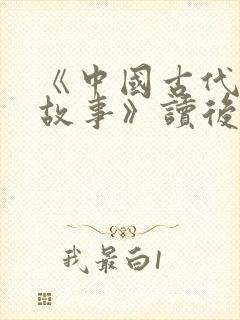 《中國古代
故事》讀後
我最白1